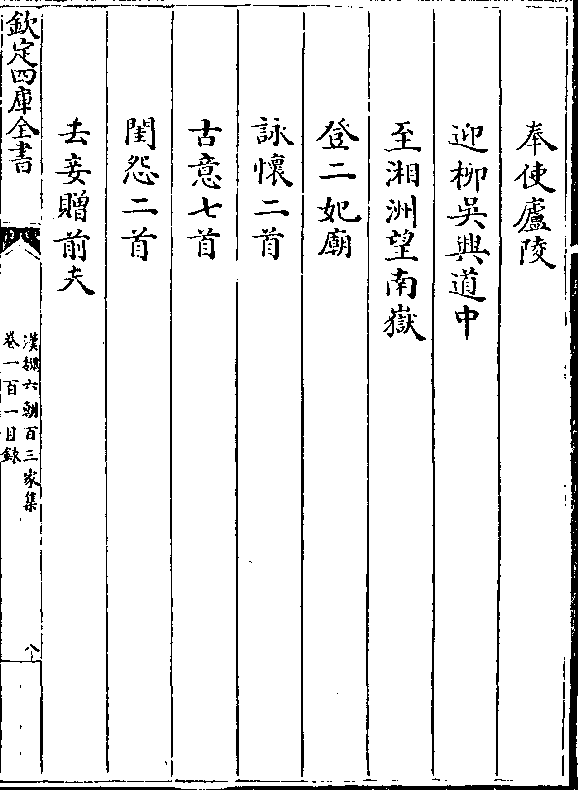 奉使廬陵
迎柳吳興道中
至湘洲望南嶽
登二妃廟
詠懷二首
古意七首
閨怨二首
去妾贈前夫
欽定四庫全書
漢魏六朝百三家集
卷一百一目録
八